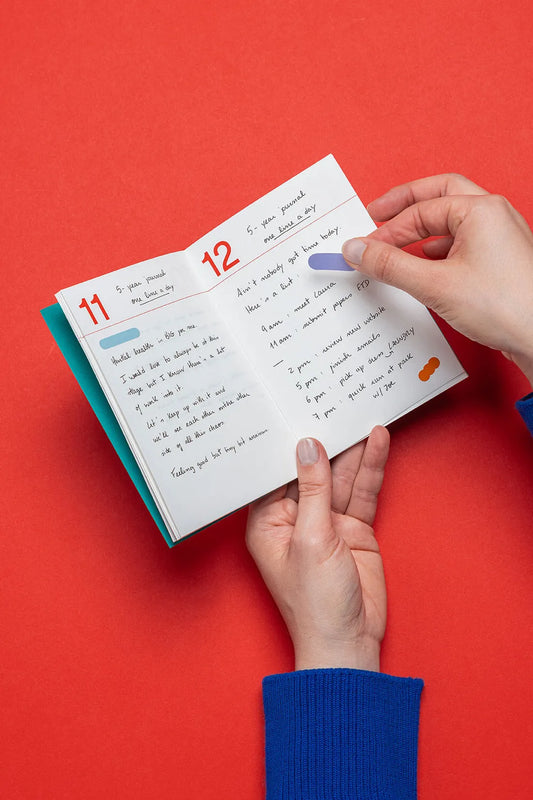 11
5- year journal
one line a day
Mental health is big for me
I would love to always be at this
stage but I know there's a lot
of work into it.
Let's keep up with it and
we'll see each other on the other
side of all this chaos
Feeling good but tiny bit anxious
12
5- year journal
one line a day
Ain't nobody got time today.
Here's a list:
9am : meet Laura
11am : submit papers EFD
—
2 pm : review new website
5 pm : finish emails
6 pm : pick up dem LAUNDRY
7 pm : quick run at park
w/ Zoe